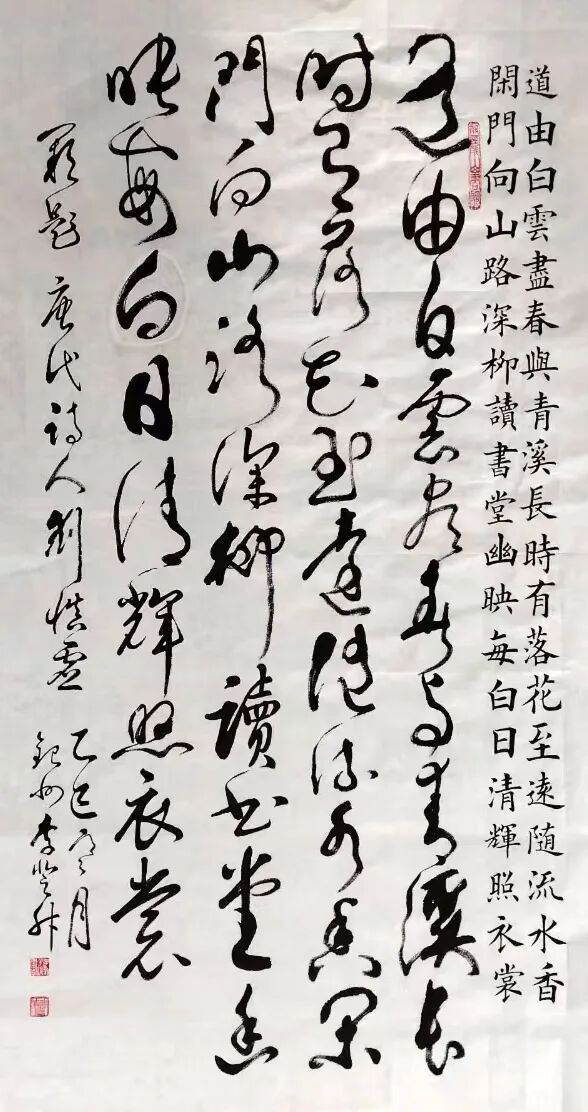 道由白雲盡春與青溪長時有落花至遠隨流水香
閑門向山路深柳讀書堂幽映每白日清輝照衣裳
道由白雲盡春與青溪長
時有落花至遠隨流水香閑
門向山路深柳讀書堂幽
映每白日清輝照衣裳
闕題 唐代詩人劉慎虛
乙巳 月
州李登